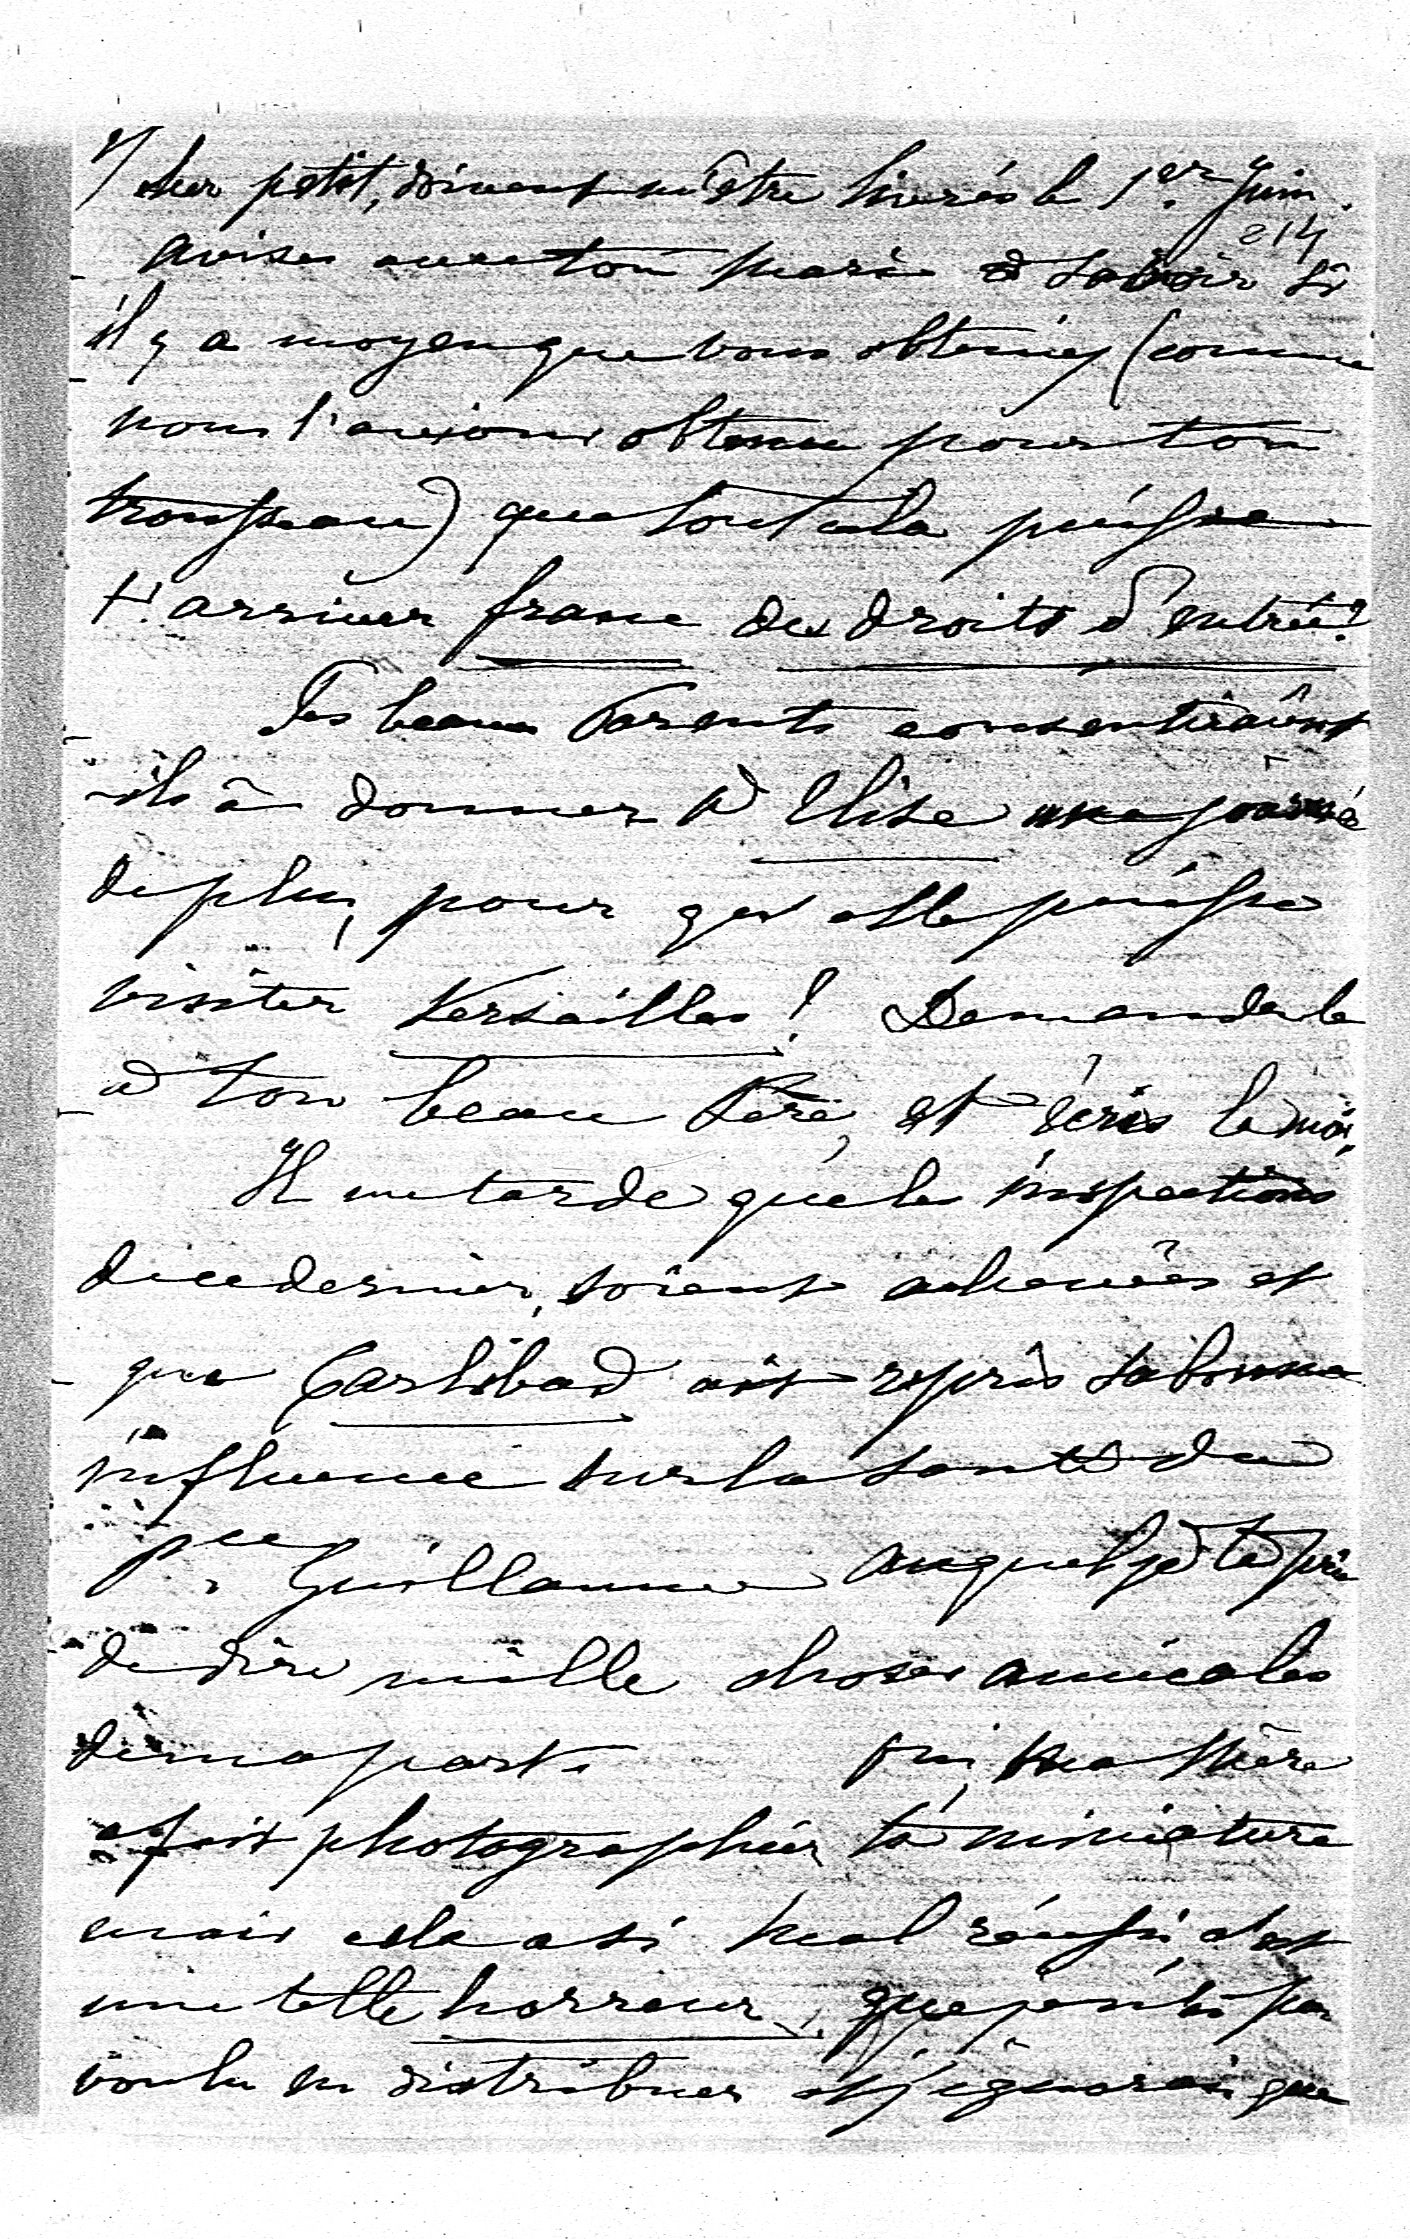 7/ leur petit, doivent m'être livrés le 1er. Juin.
214
avises avec ton Marie à savoir si
il y a moyen que vous obteniez (comme
nous l'avions obtenu pour ton
trousseau) que tout cela puisse
t'arriver franc des droits d'entrée?
Tes beaux Parents consentiraient
-ils à donner à Elise une journée
de plus, pour qu'elle puisse
visiter Versailles! Demande le
à ton beau Père, et écris le moi.
Il me tarde que les inspections
de ce dernier, soient achevées et
que Carlsbad ait repris sa bonne
influence sur la santé du
pce. Guillaume auquel je te prie
de dire mille choses amicales
de ma part. Oui, ma Mère
a fait photographier ta miniature
mais cela a si mal réussi, c'est
une telle horreur, que je n'ai pas
voulu en distribuer et j'ignorais que